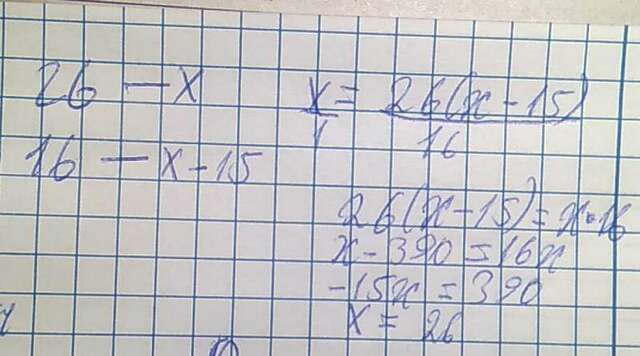 26 — x
16 — x - 15
x/1 = 26(x - 15)/16
26(x - 15) = x · 16
x - 390 = 16x
-15x = 390
x = 26